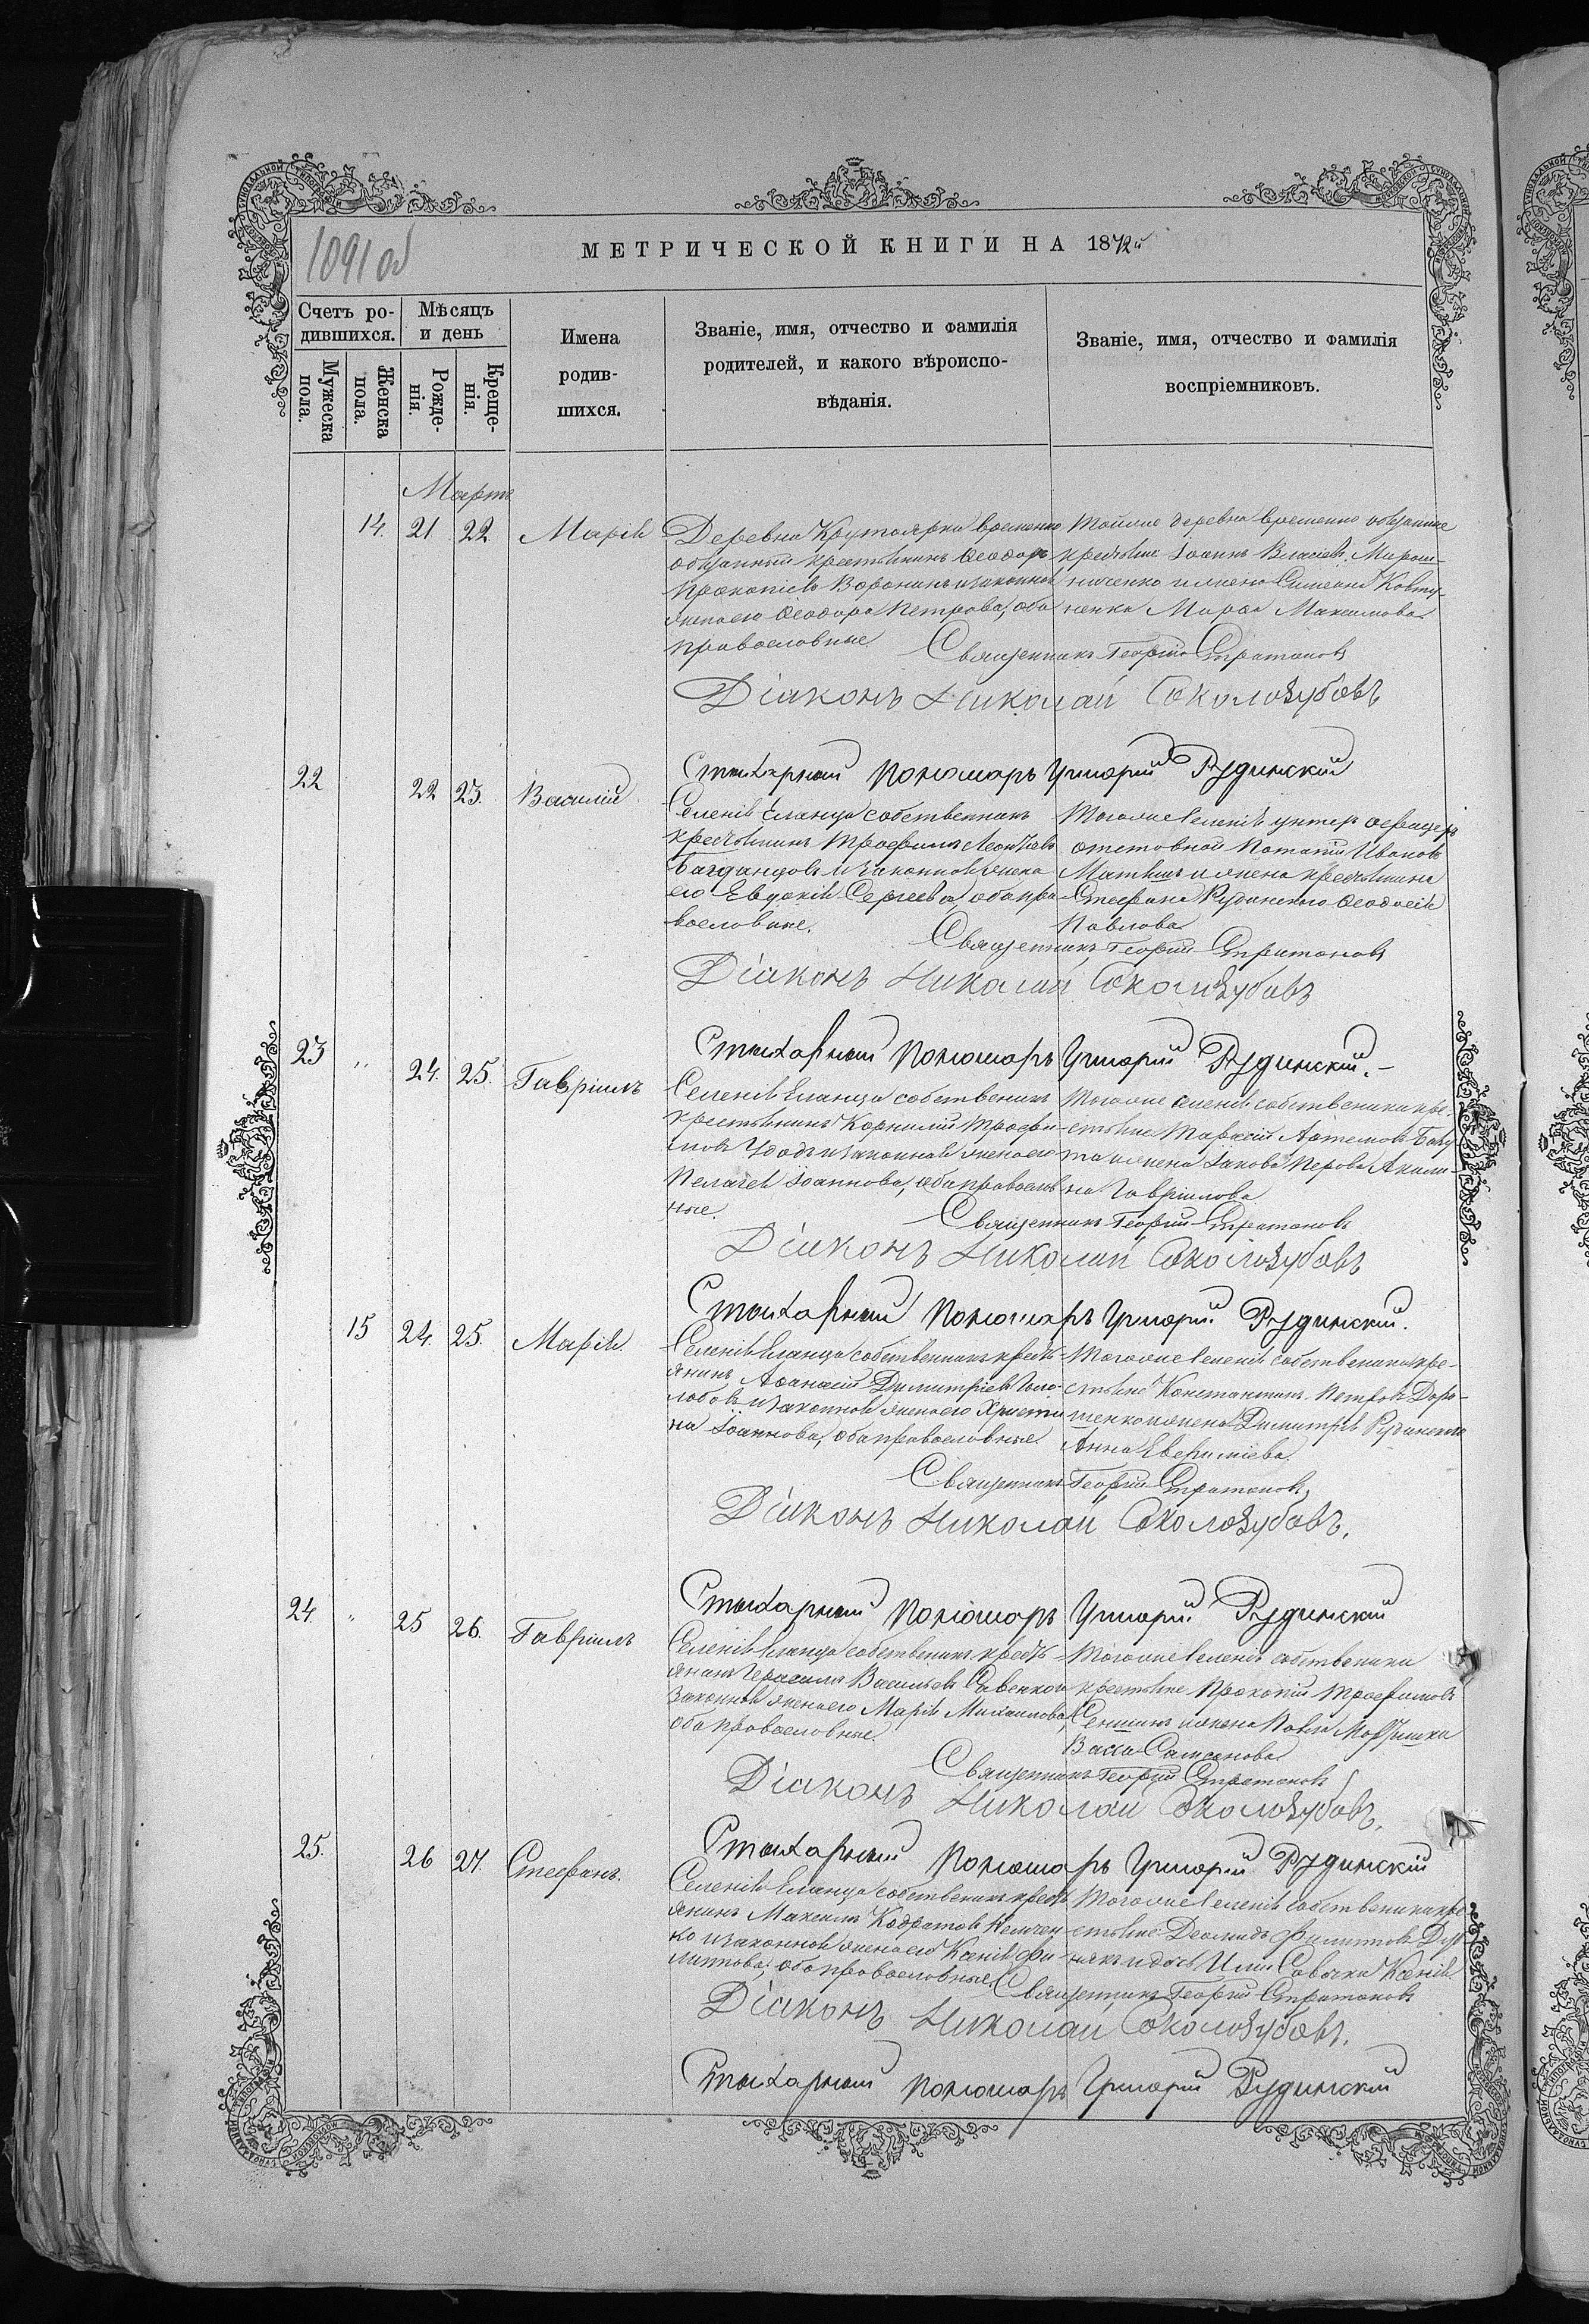 1091 об
МЕТРИЧЕСКОЙ КНИГИ НА 1872й
Счетъ родившихся.
Мѣсяцъ и день
Имена родившихся.
Званіе, имя, отчество и фамилія родителей, и какого вѣроисповѣданія.
Званіе, имя, отчество и фамилія воспріемниковъ.
Мужеска пола.
Женска пола.
Рожденія.
Крещенія.
Мартъ
14. 21 22 Марія
Деревни Крутоярки временно
обязанный крестьянинъ Ѳеодоръ
Прокопіевъ Воронинъ и законная
жена его Ѳеодора Петрова, оба
православные.
Тойже деревни временно обязанные
крестьяне Іоаннъ Власіевъ Мирош-
ниченко и жена Симеона Ковту-
ненка Марѳа Максимова
Священникъ Георгій Стратоновъ
Діаконъ Николай Соколозубовъ
Стихарный Пономарь Григорій Рудинскій
22 22 23. Василій
Селенія Еланца собственникъ
крестьянинъ Трофимъ Леонтіевъ
и законная жена
его Евдокія Сергеева, оба пра-
вославные.
Тогоже селенія унтеръ офицеръ
отставной Потапій Ивановъ
и жена крестьянина
Стефана Рудинского Ѳеодосія
Павлова
Священникъ Георгій Стратоновъ
Діаконъ Николай Соколозубовъ
Стихарный Пономарь Григорій Рудинскій.-
23 " 24. 25. Гавріилъ
Селенія Еланца собственникъ
крестьянинъ Корнилій Трофи-
мовъ и законная жена его
Пелагея Іоаннова, оба православ-
ные.
Тогоже селенія собственники кре-
стьяне Тарасій Артемовъ
и жена Іакова Перова Акили-
на Гавріилова
Священникъ Георгій Стратоновъ
Діаконъ Николай Соколозубовъ
Стихарный Пономарь Григорій Рудинскій.
15 24. 25. Марія.
Селенія Еланца собственникъ кресть-
янинъ Аѳанасій Димитріевъ Голо-
лобовъ и законная жена его Христи-
на Іоаннова, оба православные.
Тогоже селенія собственники кре-
стьяне Константинъ Петровъ Доро-
шенко и жена Димитрія Рудинского
Анна Евфиміева.
Священникъ Георгій Стратоновъ
Діаконъ Николай Соколозубовъ.
Стихарный Пономарь Григорій Рудинскій
24. " 25 26. Гавріилъ
Селенія Еланца собственникъ кресть-
янинъ Герасимъ Васильевъ Савенко и
законная жена его Марія Михаилова,
оба православные.
Тогоже селенія собственники
крестьяне Прокопій Трофимовъ
и жена Павла
Васса Самсонова
Священникъ Георгій Стратоновъ
Діаконъ Николай Соколозубовъ.
Стихарный Пономарь Григорій Рудинскій
25. 26 27. Стефанъ.
Селенія Еланца собственникъ кресть-
янинъ Максимъ Кодратовъ Немчен-
ко и законная жена его Ксенія Фи-
липпова, оба православные.
Тогоже селенія собственники кре-
стьяне Деомидъ Филиповъ
и дочь Ильи Савочки Ксенія.
Священникъ Георгій Стратоновъ
Діаконъ Николай Соколозубовъ.
Стихарный Пономарь Григорій Рудинскій